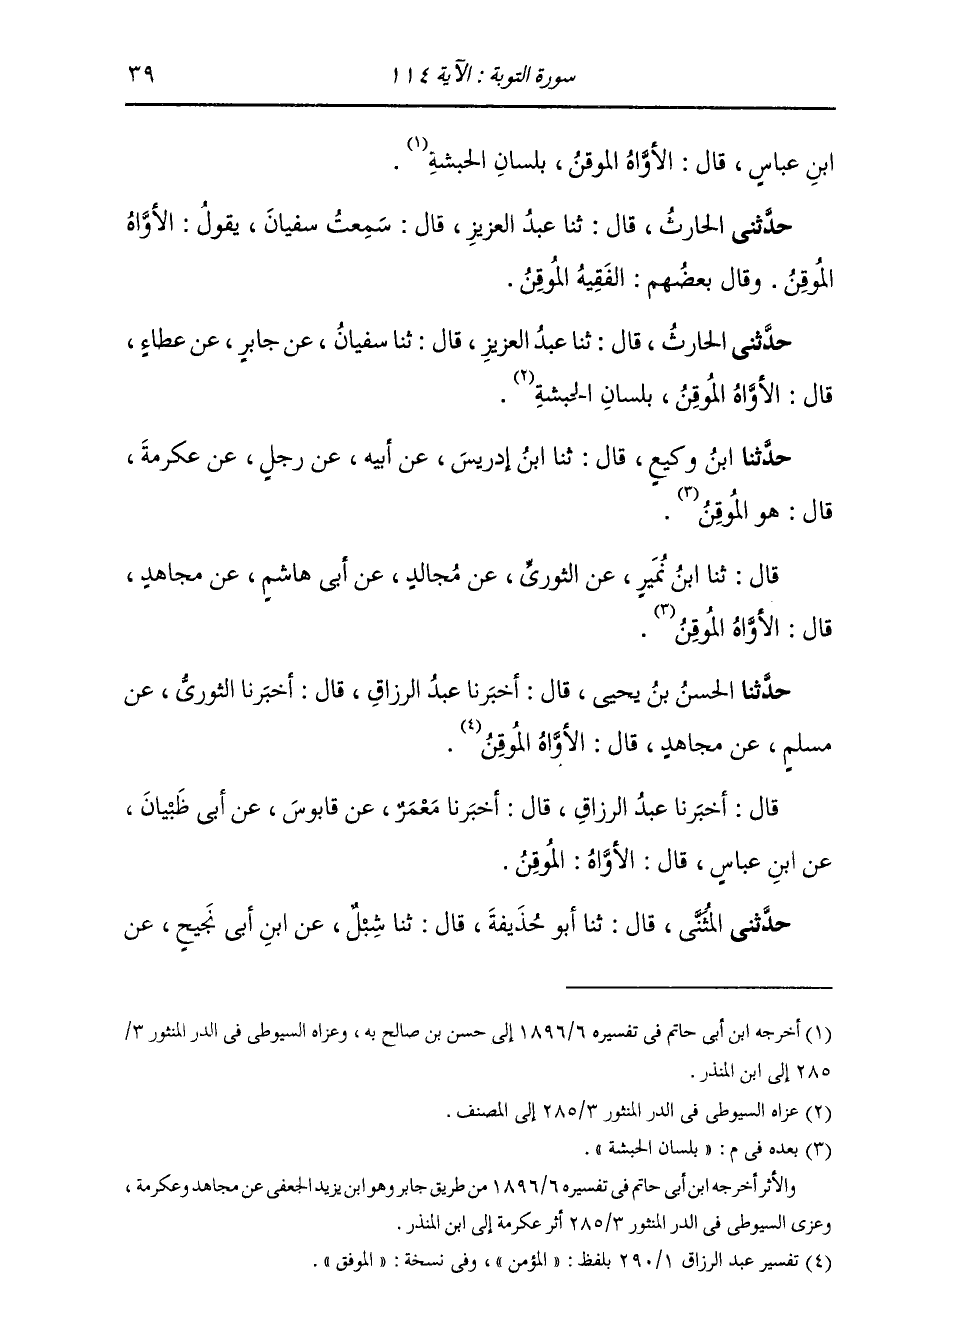 سورة التوبة : الآية ١١٤
٣٩
ابنِ عباسٍ ، قال : الأوَّاهُ الموقنُ ، بلسانِ الحبشةِ(١) .
حدَّثنى الحارثُ ، قال : ثنا عبدُ العزيزِ ، قال : سَمِعتُ سفيانَ ، يقولُ : الأوَّاهُ
المُوقِنُ . وقال بعضُهم : الفَقِيهُ المُوقِنُ .
حدَّثنى الحارثُ ، قال : ثنا عبدُ العزيزِ ، قال : ثنا سفيانُ ، عن جابرٍ ، عن عطاءٍ ،
قال : الأوَّاهُ المُوقِنُ ، بلسانِ الحبشةِ(٢) .
حدَّثنا ابنُ وكيعٍ ، قال : ثنا ابنُ إدريسَ ، عن أبيه ، عن رجلٍ ، عن عكرمةَ ،
قال : هو المُوقِنُ(٣) .
قال : ثنا ابنُ نُمَيرٍ ، عن الثورىِّ ، عن مُجالدٍ ، عن أبى هاشمٍ ، عن مجاهدٍ ،
قال : الأوَّاهُ المُوقِنُ(٣) .
حدَّثنا الحسنُ بنُ يحيى ، قال : أخبَرنا عبدُ الرزاقِ ، قال : أخبَرنا الثورىُّ ، عن
مسلمٍ ، عن مجاهدٍ ، قال : الأوَّاهُ المُوقِنُ(٤) .
قال : أخبَرنا عبدُ الرزاقِ ، قال : أخبَرنا مَعْمَرٌ ، عن قابوسَ ، عن أبى ظَبْيانَ ،
عن ابنِ عباسٍ ، قال : الأوَّاهُ : المُوقِنُ .
حدَّثنى المُثَنَّى ، قال : ثنا أبو حُذَيفةَ ، قال : ثنا شِبْلٌ ، عن ابنِ أبى نَجيحٍ ، عن
(١) أخرجه ابن أبى حاتم فى تفسيره ١٨٩٦/٦ إلى حسن بن صالح به ، وعزاه السيوطى فى الدر المنثور ٣/
٢٨٥ إلى ابن المنذر .
(٢) عزاه السيوطى فى الدر المنثور ٢٨٥/٣ إلى المصنف .
(٣) بعده فى م : « بلسان الحبشة » .
والأثر أخرجه ابن أبى حاتم فى تفسيره ١٨٩٦/٦ من طريق جابر وهو ابن يزيد الجعفى عن مجاهد وعكرمة ،
وعزى السيوطى فى الدر المنثور ٢٨٥/٣ أثر عكرمة إلى ابن المنذر .
(٤) تفسير عبد الرزاق ٢٩٠/١ بلفظ : « المؤمن » ، وفى نسخة : « الموفق » .